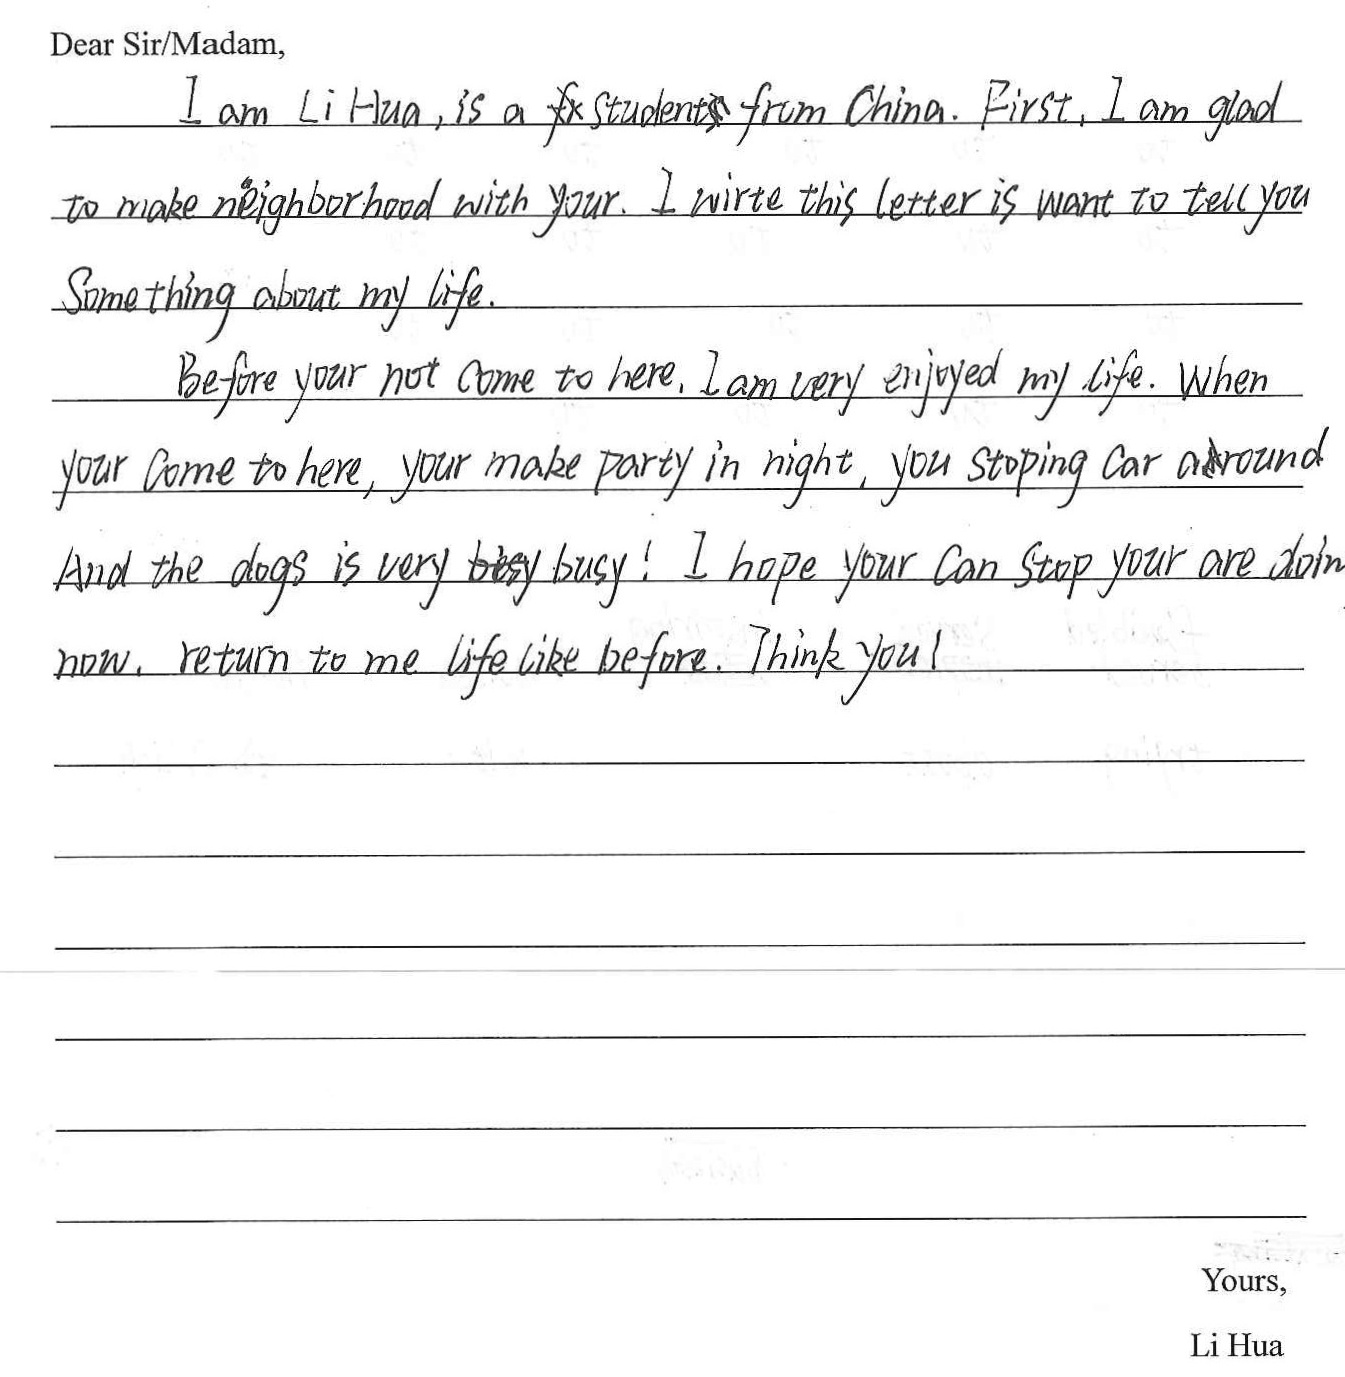 Dear Sir/Madam,
I am Li Hua, is a students from China. First, I am glad
to make neighborhood with your. I wirte this letter is want to tell you
Something about my life.
Before your not come to here, I am very enjoyed my life. When
your come to here, your make party in night, you stoping car around
And the dogs is very busy! I hope your can stop your are doin
now, return to me life like before. Think you!
Yours,
Li Hua